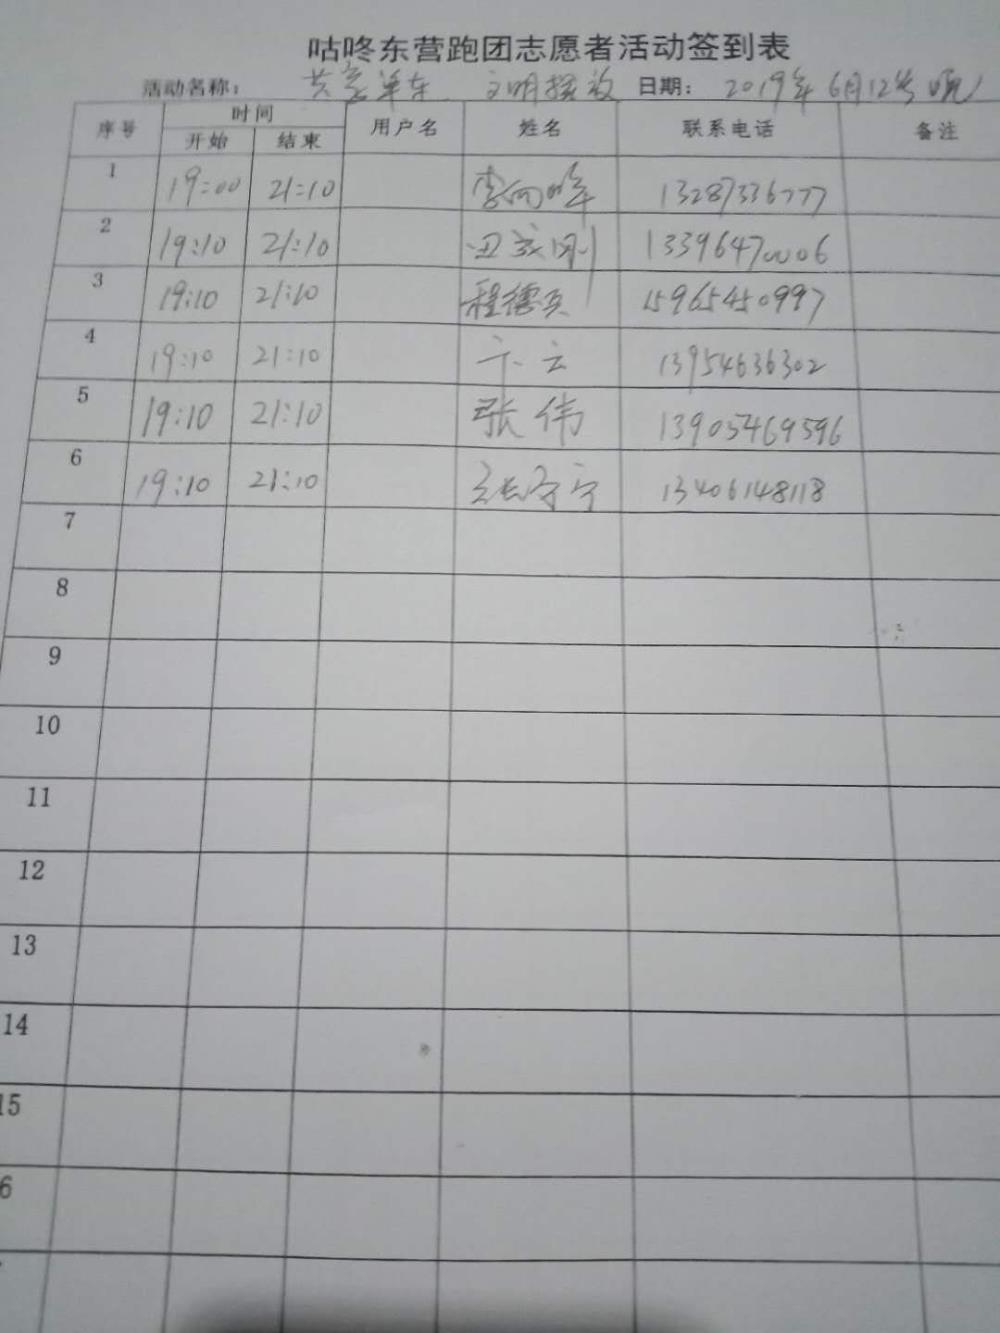 咕咚东营跑团志愿者活动签到表
活动名称： 共享单车 文明摆放 日期： 2019年6月12号 晚
序号 时间 用户名 姓名 联系电话 备注
开始 结束
1 19:00 21:10 李向晖 13287336777
2 19:10 21:10 刚 13396470006
3 19:10 21:10 程德兵 15965450997
4 19:10 21:10 卞云 13954636302
5 19:10 21:10 张伟 13905469596
6 19:10 21:10 张守宁 13406148118
7
8
9
10
11
12
13
14
15
6